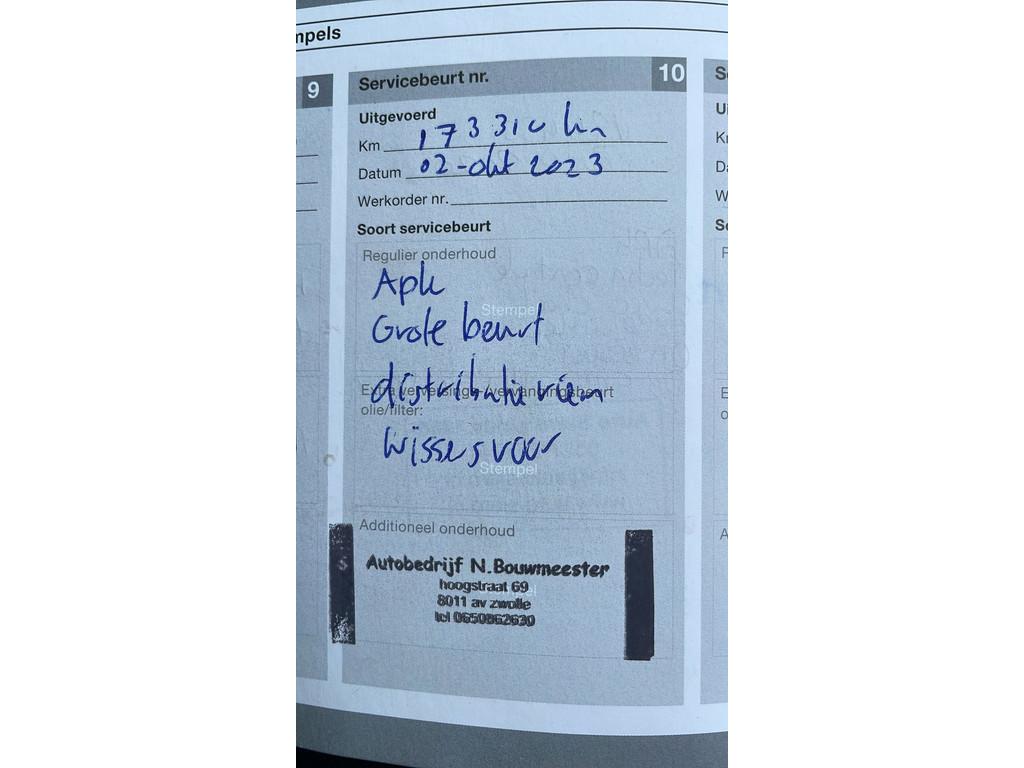 mpels
9
Servicebeurt nr. 10
S
Uitgevoerd
Km 173310 km
Datum 02-okt 2023
Werkorder nr.
Soort servicebeurt
Regulier onderhoud
Apk
Stempel
Grote beurt
Extra verversings-/vervangingsbeurt
olie/filter:
distributie riem
Wissers voor
Stempel
Additioneel onderhoud
Autobedrijf N.Bouwmeester
hoogstraat 69
8011 av zwolle
tel 0650862630
Ui
K
D
W
S
F
E
o
A